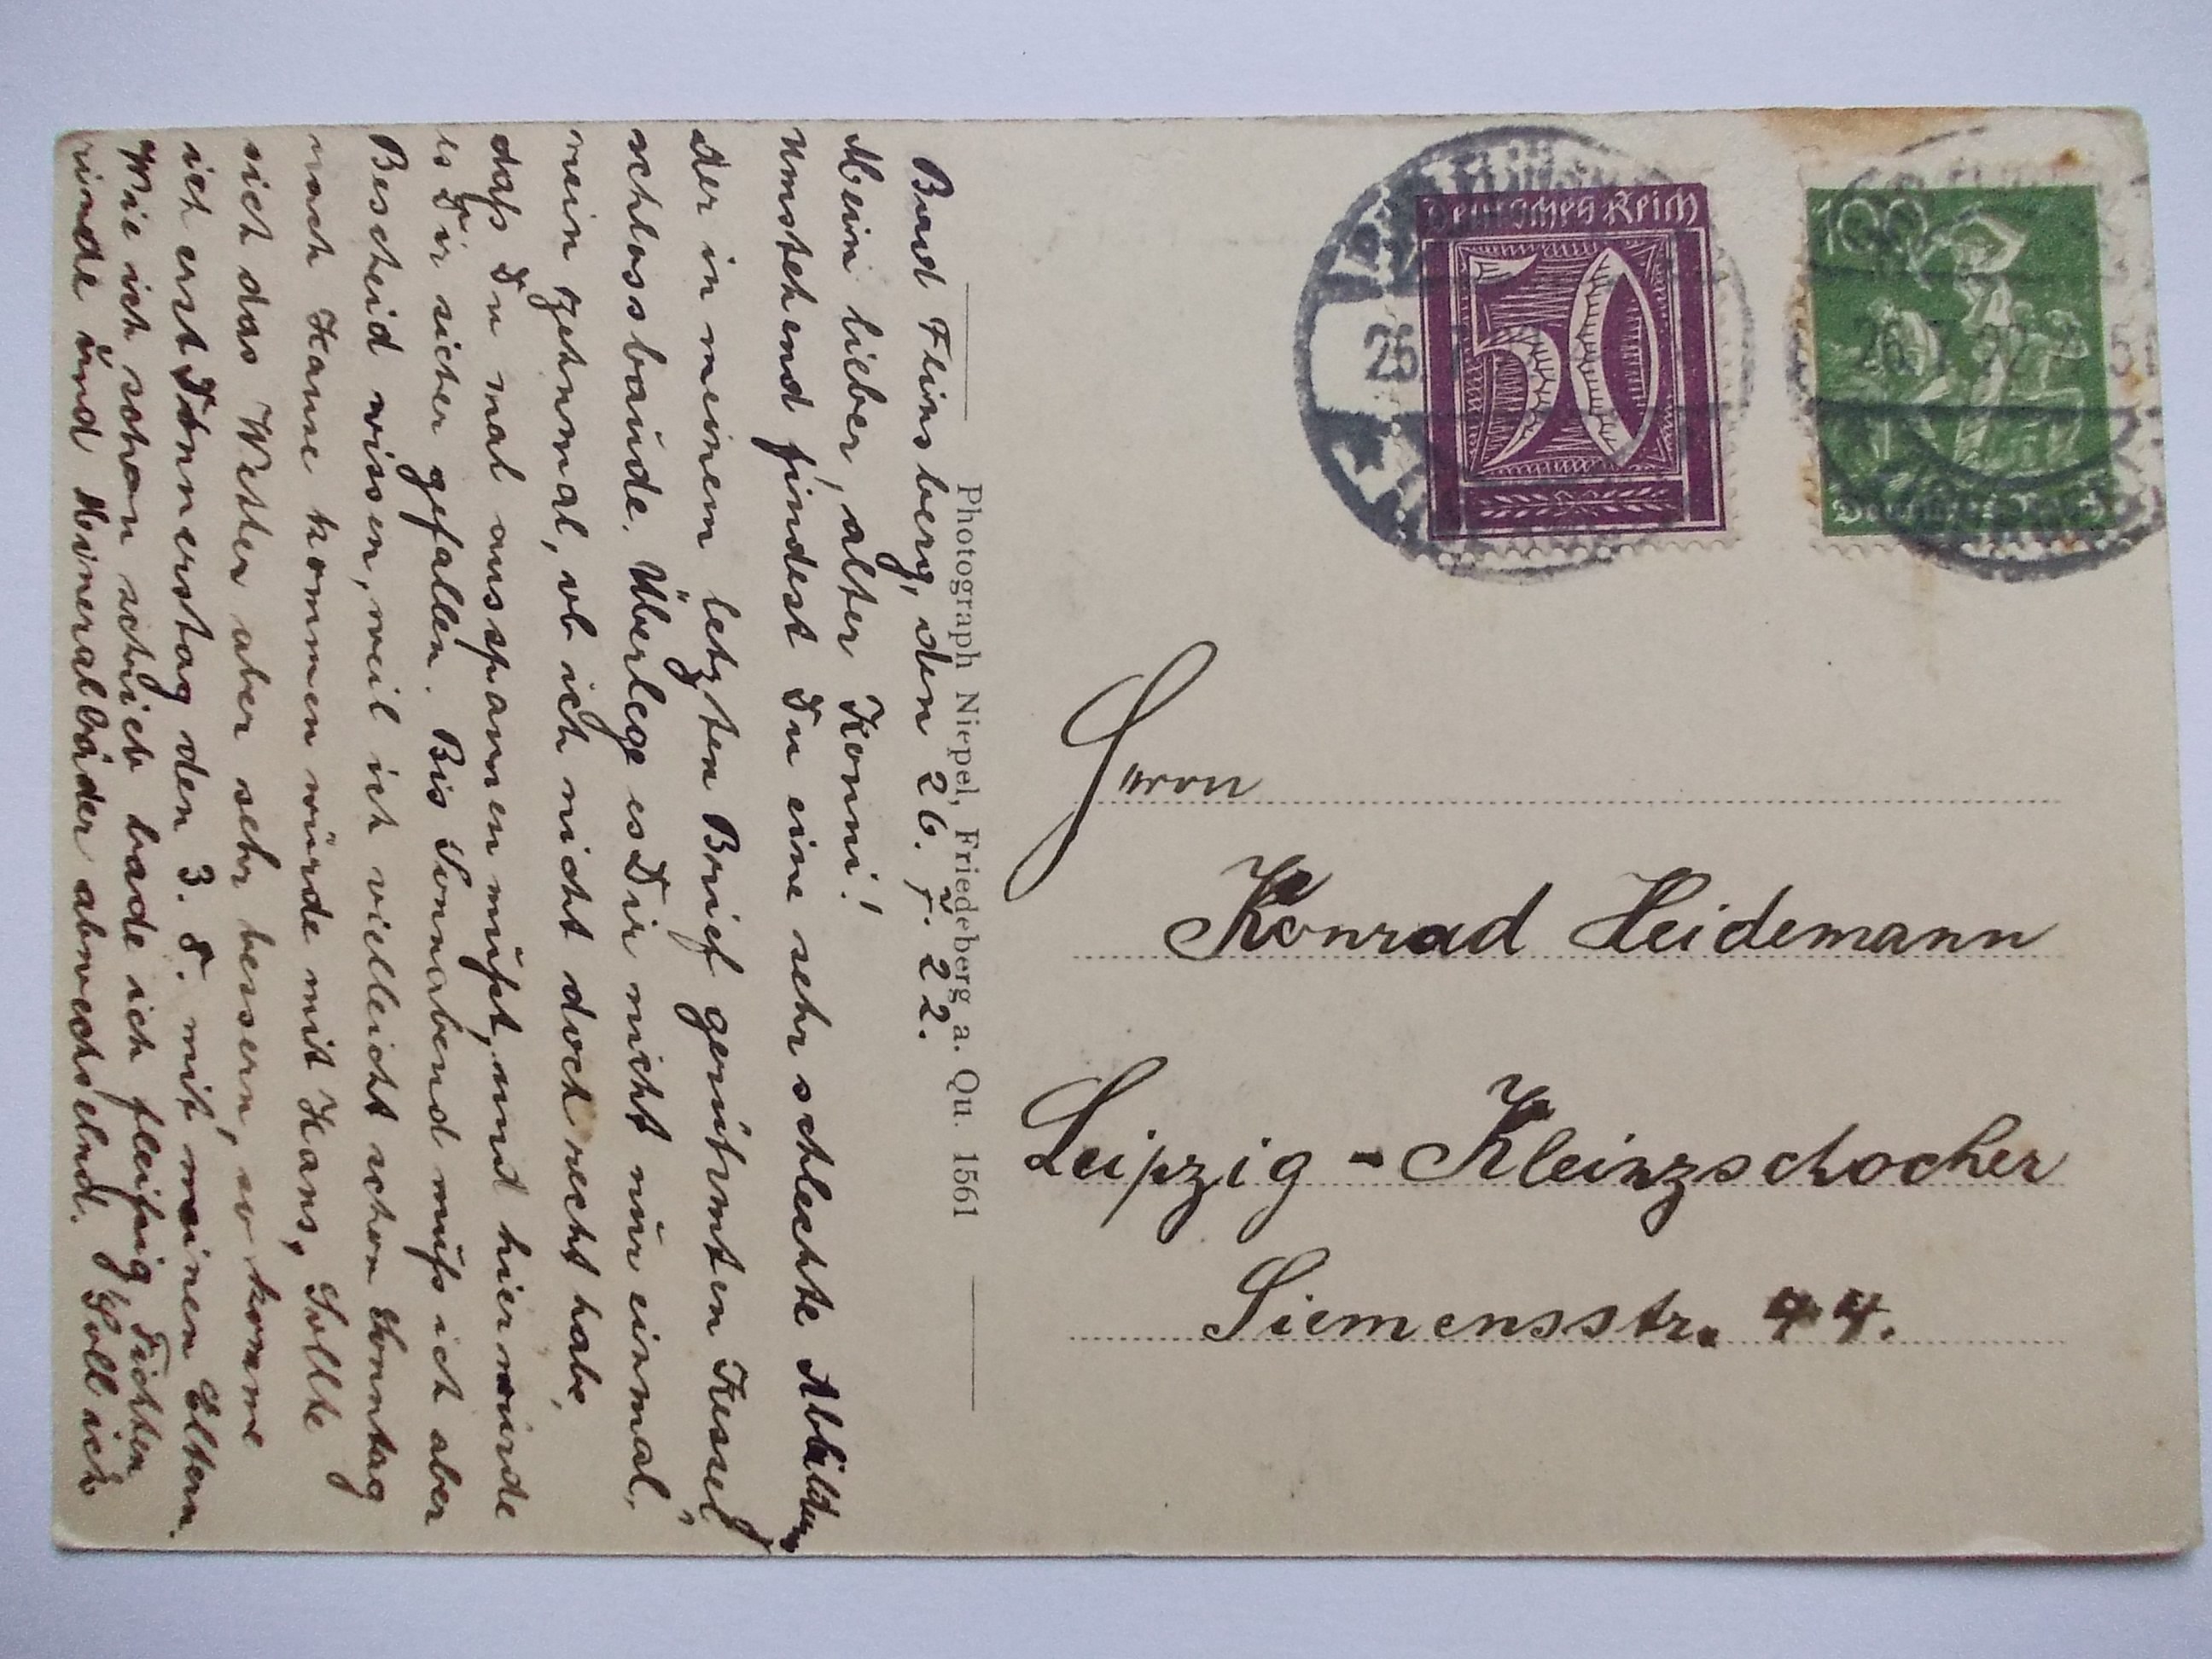 Bad Flinsberg, den 26. 7. 22.
Mein lieber, alter Konni!
Umstehend findest Du eine sehr schlechte Abbildung
der in meinem letzten Brief gerühmten Kessel¬
schlossbaude. Überlege es Dir nicht nur einmal,
nein zehnmal, ob ich nicht doch recht habe,
daß Du mal ausspannen mußt, und hier würde
es Dir sicher gefallen. Bis Sonnabend muß ich aber
Bescheid wissen, weil ich vielleicht schon Sonntag
nach Hause kommen würde mit Hans, Sollte
sich das Wetter aber sehr bessern, so komme
ich erst Donnerstag den 3. 8. mit meinen Eltern.
Wie ich schon schrieb bade ich fleißig, Fichten
rinde und Mineralbäder abwechselnd. Soll ich
Photograph Niepel, Friedeberg a. Qu. 1561
Deutsches Reich
50
100
Deutsches Reich
26.7.22
Herrn
Konrad Heidemann
Leipzig - Kleinzschocher
Siemensstr. 44.